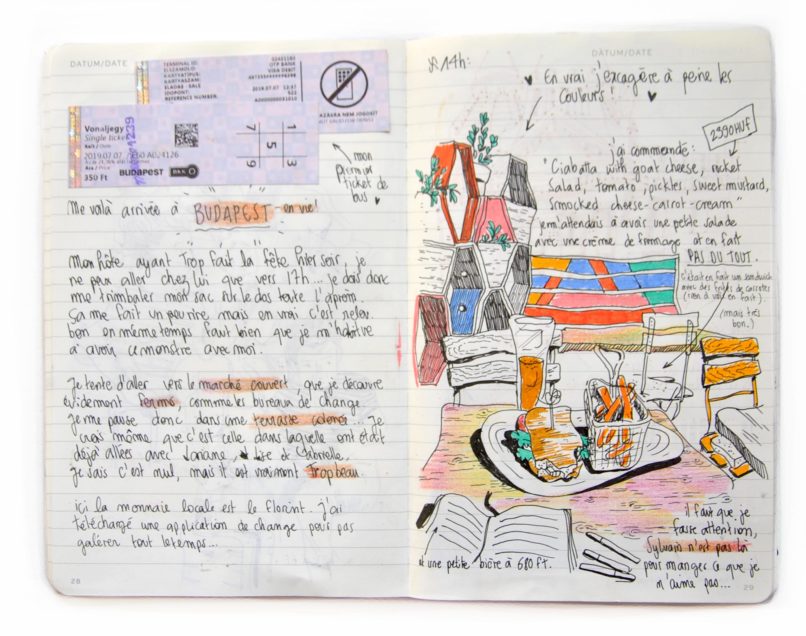 DATUM/DATE
TERMINAL ID:
02401103
OTP BANK
VISA DEBIT
SLEDGE - SALE
2019.07.07
REFERENCE NUMBER:
Vonaljegy
Single ticket
2019.07.07
A024126
350 Ft
BUDAPEST
BKK
1 3
5
7 9
mon
premier
ticket de
bus
Me voilà arrivée à BUDAPEST en vie!
Mon hôte ayant Trop fait la fête hier soir, je
ne peux aller chez lui que vers 17h... je dois donc
me trimbaler mon sac sur le dos toute l'aprem.
Ça me fait un peu rire, mais en vrai c'est relou.
bon en même temps faut bien que je m'habitue
à avoir ce monstre avec moi.
Je tente d'aller vers le marché couvert, que je découvre
évidemment fermé, comme les bureaux de change.
Je me pause donc dans une terrasse colorée... Je
crois même que c'est celle dans laquelle on était
déjà allées avec et Gabrielle.
Je sais c'est nul, mais il est vraiment trop beau.
ici la monnaie locale est le Florint. j'ai
téléchargé une application de change pour pas
galérer tout le temps...
28
DATUM/DATE
14h:
En vrai j'exagère à peine les
couleurs!
2390HUF
j'ai commandé:
"Ciabatta with goat cheese, rocket
salad, tomato, pickles, sweet mustard,
smocked cheese-carrot-cream"
je m'attendais à avoir une petite salade
avec une crème de fromage et en fait
PAS DU TOUT.
c'était en fait un sandwich
avec des frites de carottes
(rien à voir en fait).
(mais très
bon.)
et une petite bière à 680 ft.
il faut que je
fasse attention,
Sylvain n'est pas là
pour manger ce que je
n'aime pas...
29